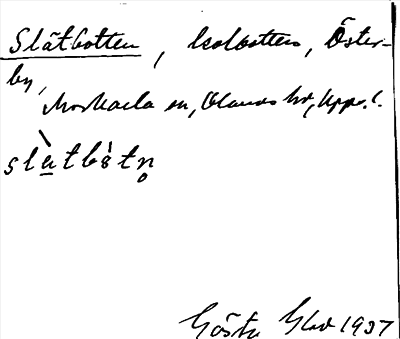 Slätbotten, kolbotten, Öster-
by,
Morkarla sn, Olands hd, Upps. l.
slàtbòtn̥
Gösta Glad 1937